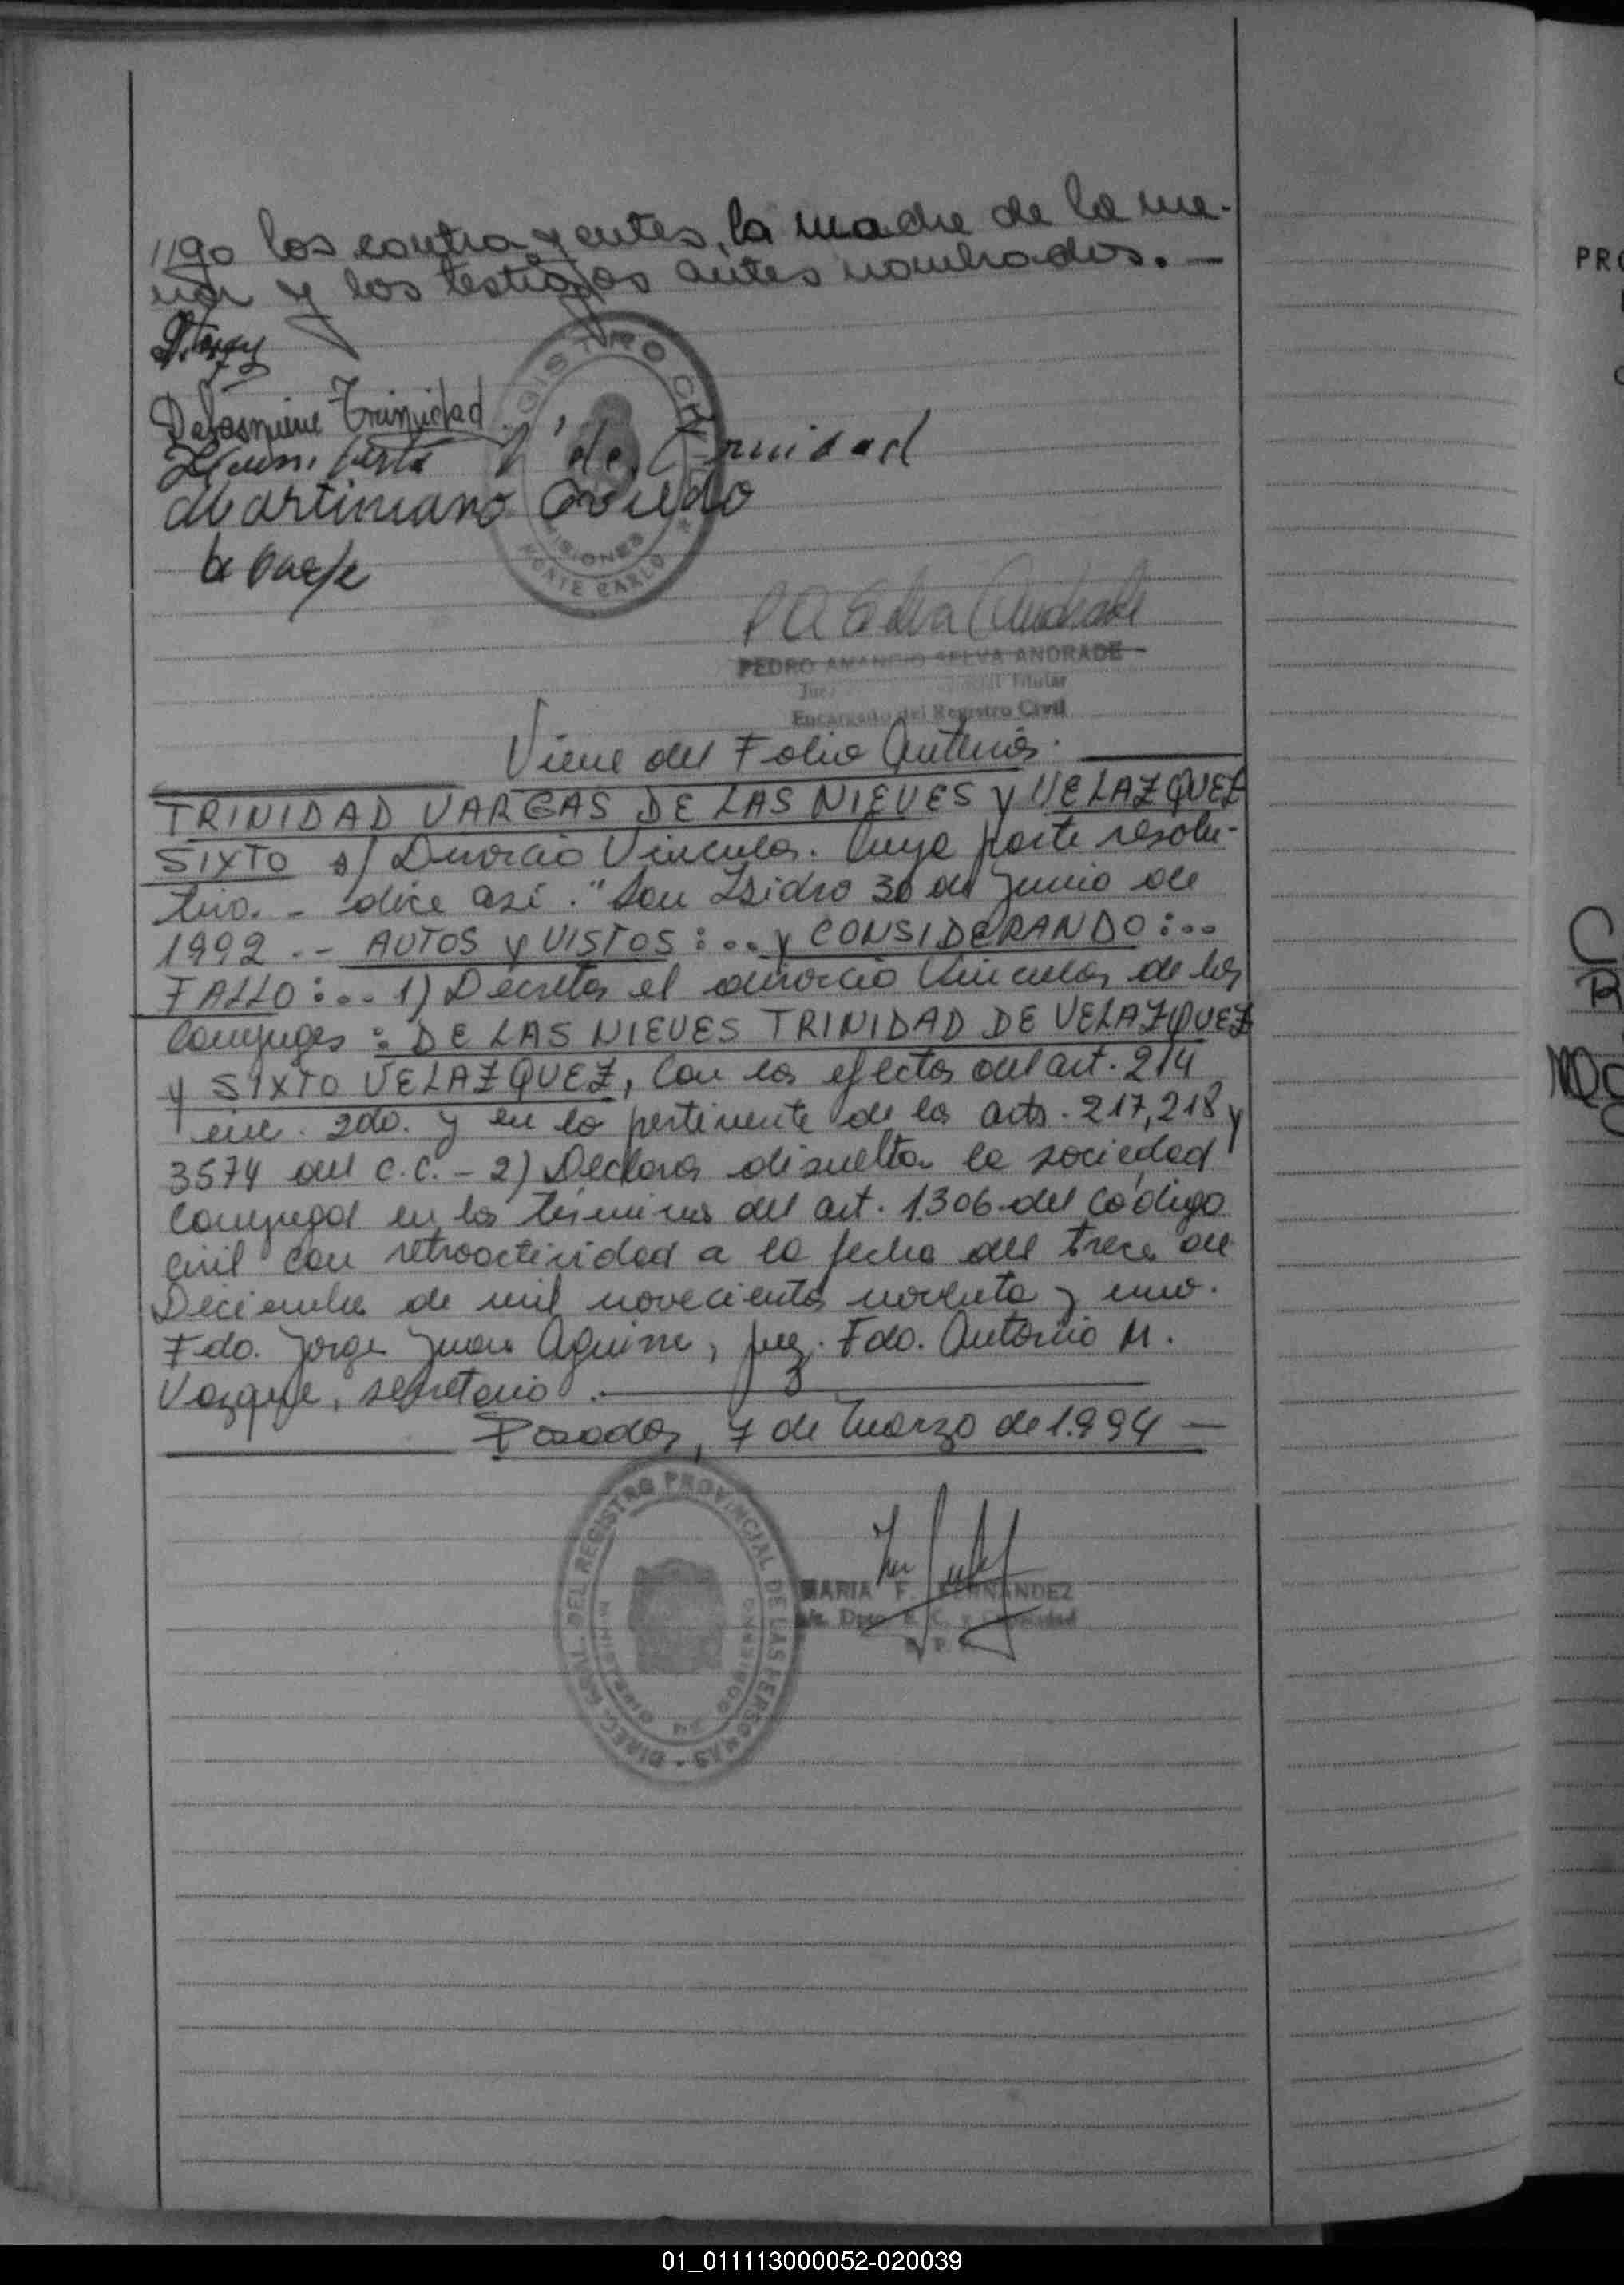 //go los contrayentes, la madre de la me-
nor y los testigos antes nombrados. -
Delasnieve Trinidad
de Trinidad
Martimiano Oviedo
REGISTRO CIVIL
MISIONES
MONTE CARLO
PEDRO AMANCIO SELVA ANDRADE
Juez Titular
Encargado del Registro Civil
Viene del Folio Anterior.
TRINIDAD VARGAS DE LAS NIEVES y VELAZQUEZ
SIXTO s/ Divorcio Vincular. Cuya parte resolu-
tiva. - dice así. "San Isidro 30 de Junio de
1992. - AUTOS y VISTOS:... y CONSIDERANDO:...
FALLO:... 1) Decretar el divorcio Vincular de los
Conyuges: DE LAS NIEVES TRINIDAD DE VELAZQUEZ
y SIXTO VELAZQUEZ, Con los efectos del art. 214
inc. 2do. y en lo pertinente de los arts. 217, 218 y
3574 del C.C. - 2) Declarar disuelta la sociedad
Conyugal en los términos del art. 1.306 del Código
Civil con retroactividad a la fecha del trece de
Deciembre de mil novecientos noventa y uno.
Fdo. Jorge Juan Aguirre, Juez. Fdo. Antonio M.
Vazque, secretario.
Posadas, 7 de Marzo de 1.994
DIREC. GRAL. DEL REGISTRO PROVINCIAL DE LAS PERSONAS
MINISTERIO DE GOBIERNO
MARIA F. FERNANDEZ
PRO
01_011113000052-020039